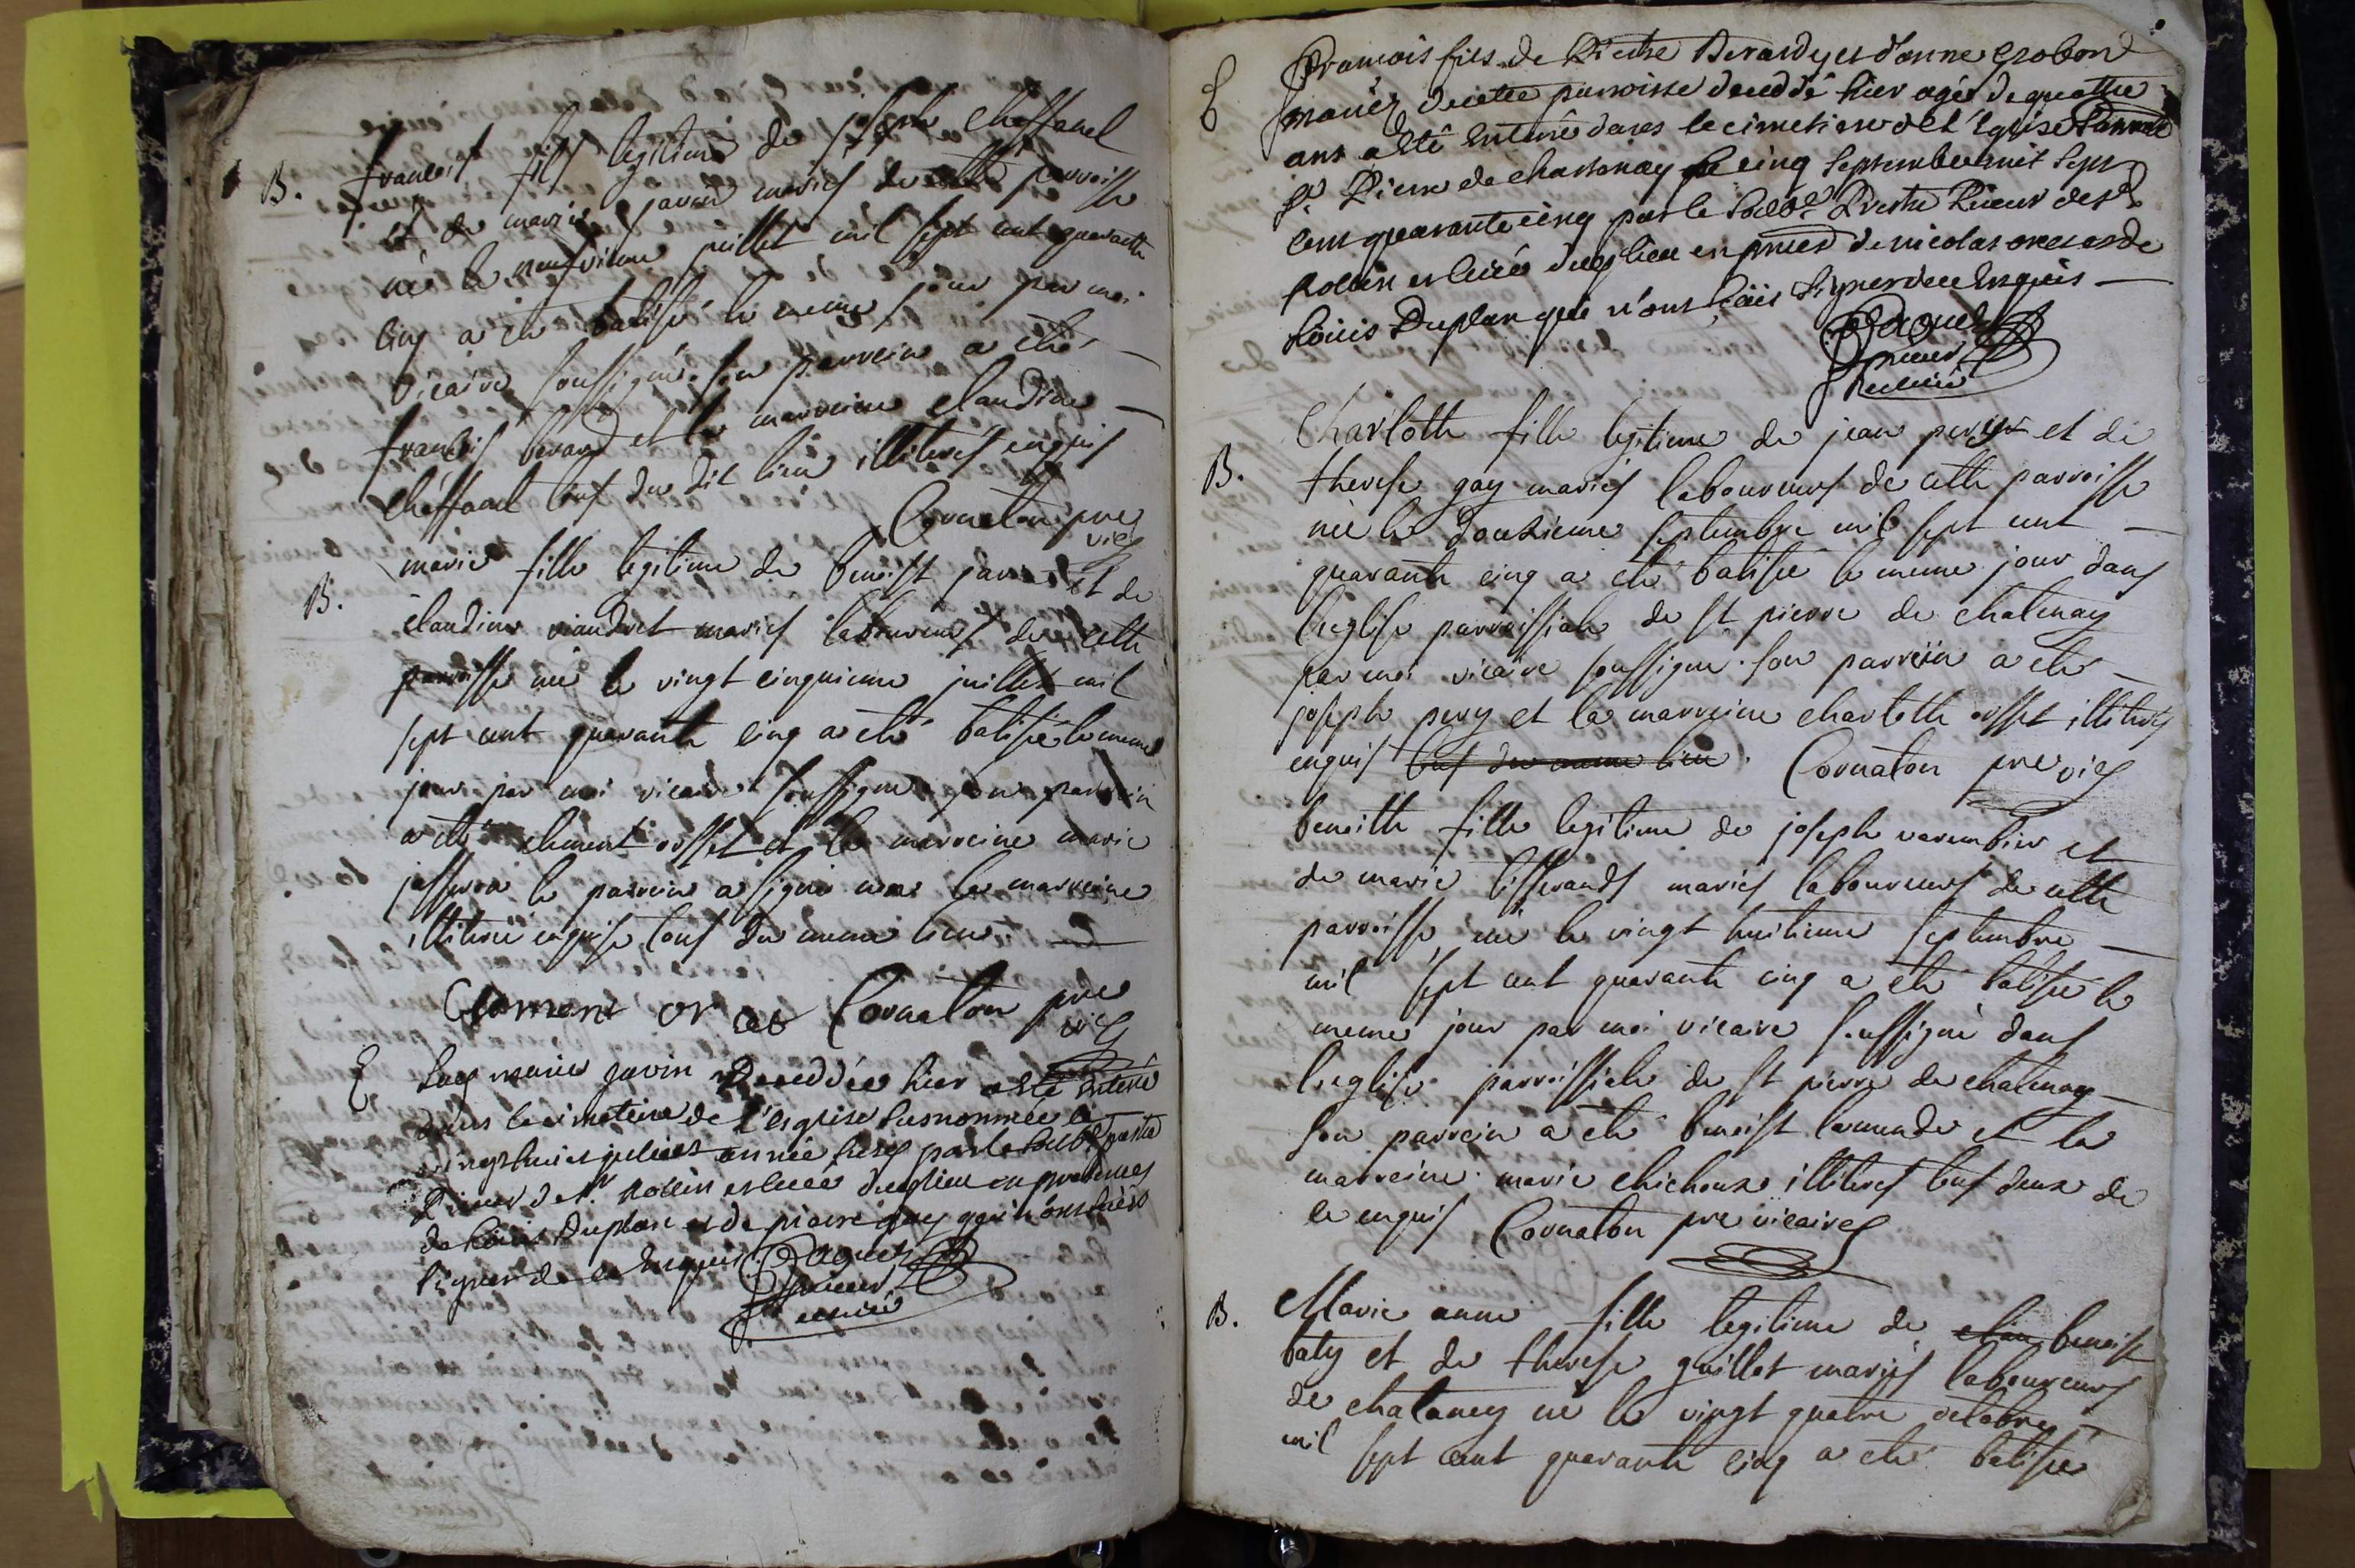 B. francois fils legitime de joseph cheffanel
et de marie javin mariés de cette parroisse
né le neufvieme juillet mil sept cent quarante
cinq a eté batisé le meme jour par moi
vicaire soussigné. son parrein a eté
francois berard et la marreine claudine
cheffanel tous du dit lieu illiterés enquis
Cornaton pre
vic
B. marie fille legitime de benoist javin et de
claudine viandret mariés laboureurs de cette
parroisse née le vingt cinquieme juillet mil
sept cent quarante cinq a eté batisée le meme
jour par moi vicaire soussigné son parrein
a eté clement orsset et la marreine marie
le parrein a signé non la marreine
illiterée enquise tous du meme lieu
Clement or set Cornaton pre
vic
E ladᵉ marie javin decedée hier a esté enterré
dans le cimetiere de l'eglise susnommée le
vingt huit juliet année susd par le soubᵉ
Prieur de Sᵗ Rollin et curé dud lieu en presences
de Loüis Duplan et de piarre gay qui n'ont sceüs
signer de ce Enquis Paquet
Prieur
et curé
E François fils de Pierre Berardy et d'anne grobon
mariéz de cette parroisse decedé hier agé de quattre
ans a esté enterré dans le cimetiere de l'Eglise Parroˡᵉ
Sᵗ Pierre de chastenay le cinq Septembre mil Sept
cent quarante cinq par le soubᵉ Prestre Prieur de Sᵗ
Rollin et curé dud lieu en prnces de nicolas et de
Loüis Duplan qui n'ont sceüs signer de ce Enquis
Paquet
Prieur
et curé
B. Charlotte fille legitime de jean pery et de
therese gay mariés laboureurs de cette parroisse
née le douzieme septembre mil sept cent
quarante cinq a eté batisée le meme jour dans
l'eglise parroissiale de st pierre de chatenay
par moi vicaire soussigné. son parrein a eté
joseph pery et la marreine charlotte orsset illiterés
enquis tous du meme lieu. Cornaton pre vic
benoitte fille legitime de joseph varembier et
de marie tisserands mariés laboureurs de cette
parroisse née le vingt huitieme septembre
mil sept cent quarante cinq a eté batisée le
meme jour par moi vicaire soussigné dans
l'eglise parroissiale de st pierre de chatenay
son parrein a eté benoist lamende et la
marreine marie chichoux illiterés tous deux de
ce enquis Cornaton pre vicaire
B. Marie anne fille legitime de benoist
baty et de therese guillot mariés laboureurs
de chatenay née le vingt quatre octobre
mil sept cent quarante cinq a eté batisée